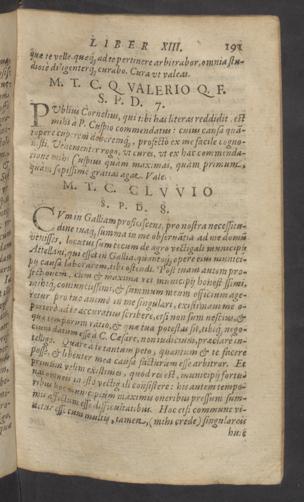 LIBER XIII. 191
quæ te velle, quæq́; ad te pertinere arbitrabor, omnia stu-
diosè diligenterq́; curabo. Cura ut valeas.
M. T. C. Q VALERIO Q. F.
S. P. D. 7.
PVblius Cornelius, qui tibi has literas reddidit, est
mihi à P. Cuspio commendatus: cuius causa quā-
topere cuperem deberemq́;, profectò ex me facile cogno-
visti. Vehementer rogo, ut cures, ut ex hac commenda-
tione mihi Cuspius quàm maximas, quàm primum,
quàm sæpissimè gratias agat. Vale.
M. T. C. CLVVIO
S. P. D. 8.
CVm in Galliam proficiscens, pro nostra necessitu-
dine tuaq́; summa in me observātia ad me domū
venisses, locutus sum tecum de agro vectigali municipij
Atellani, qui esset in Gallia, quantoq́; opere eius munici-
pij causa laborarem, tibi ostendi. Post tuam autem pro-
fectionem, cùm & maxima res municipij honestissimi,
mihiq́; coniunctissimi, & summum meum officium age-
retur pro tuo animo in me singulari, existimavi me o-
portere ad te accuratius scribere, etsi non sum nescius, &
quæ temporum ratio, & quæ tua potestas sit, tibiq́; nego-
cium datum esse à C. Cæsare, non iudicium, præclare in-
telligo. Quare à te tantum peto, quantum & te facere
posse, & libenter mea causa facturum esse arbitror. Et
primùm velim existimes, quod res est, municipij fortu-
nas omnes in isto vectigali consistere: his autem tempo-
ribus hoc municipium maximis oneribus pressum sum-
mis affectum esse difficultatibus. Hoc etsi commune vi-
detur esse cum multis, tamen, (mihi crede) singulareis
huic